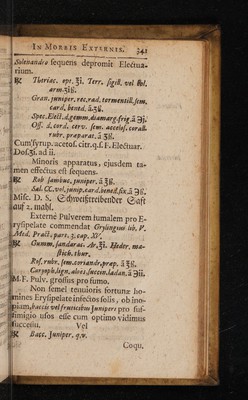 IN MORBIS EXTERNIS. 341
Solenandro sequens depromit Electua-
rium.
℞ Theriac. opt. ʒi. Terr. sigill. vel bol.
arm. ʒiß.
Gran. juniper. rec. rad. tormentill. sem.
card. bened. ã. ʒß.
Spec. Elect. d. gemm. diamarg. frig. ã ℈j.
Oss. d. cord. cerv. sem. acetos. corall.
rubr. præparat. ã ʒß.
Cum syrup. acetos. citr. q. s. F. Electuar.
Dos. ʒi. ad ii.
Minoris apparatus, ejusdem ta-
men effectus est sequens.
℞ Rob sambuc. juniper. ã ʒß.
Sal. CX. vel junip. card. bened. fix. ã ℈ß.
Misc. D. S. Schweißtreibender Saft
auf 2. mahl.
Externè Pulverem fumalem pro E-
rysipelate commendat Grylingius lib. V.
Med. Pract. part. 3. cap. XV.
℞ Gumm. sandarac. Ar. ʒi. Heder. ma-
stich. thur.
Ros. rubr. sem. coriandr. præp. ã ʒß.
Caryoph. lign. aloes, succin. ladan. ã ℈ii.
M. F. Pulv. grossus pro fumo.
Non semel tenuioris fortunæ ho-
mines Erysipelate infectos solis, ob ino-
piam, baccis vel fruticibus Juniperi pro suf-
fimigio usos esse cum optimo vidimus
successu. Vel
℞ Bacc. Juniper. q. v.
Coqu.